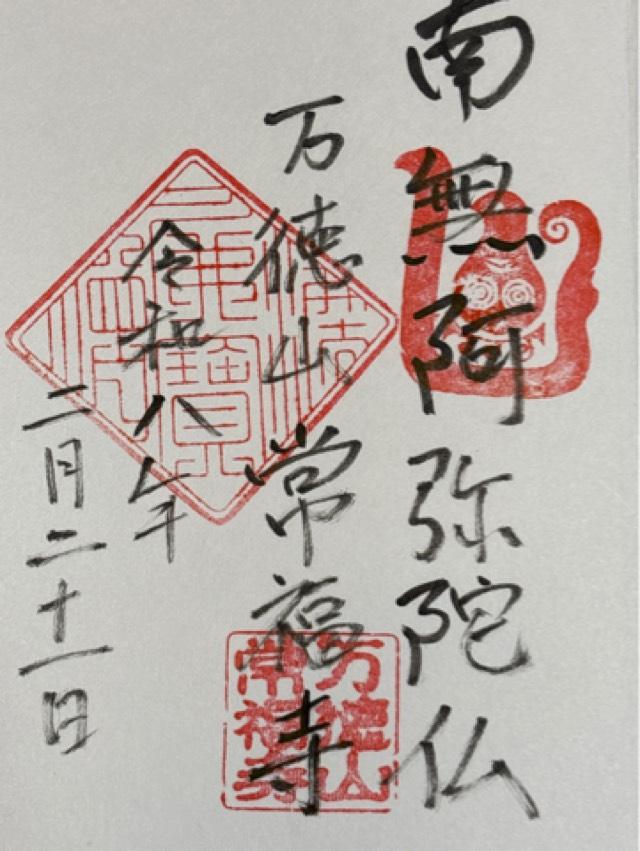 南無阿弥陀仏
万徳山常福寺
令和八年
二月二十一日
万徳山
常福寺